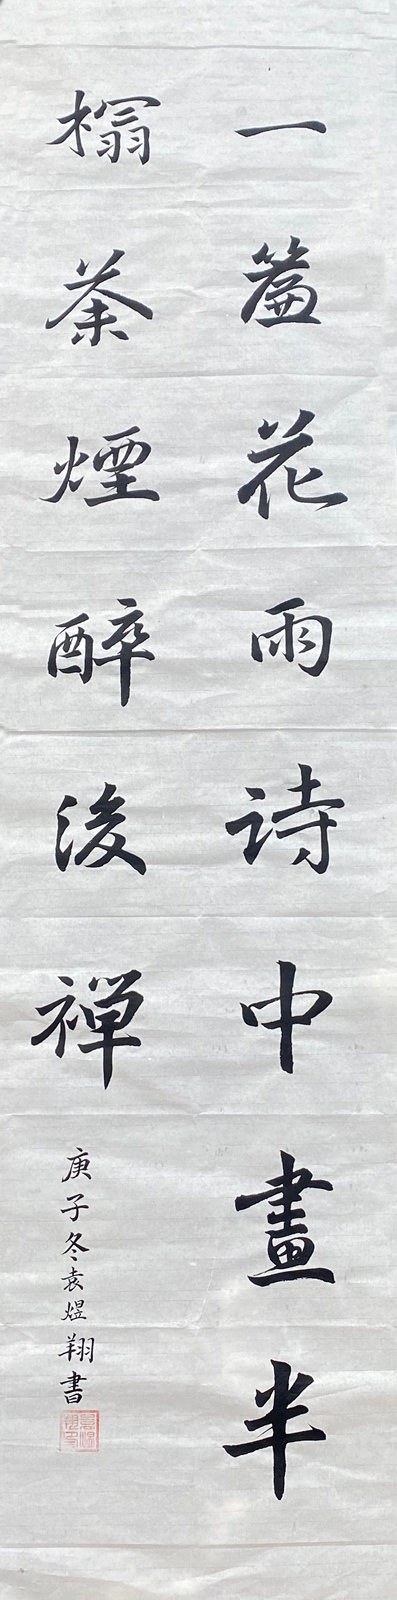 一簾花雨詩中畫半
榻茶煙醉後禅
庚子冬袁煜翔書